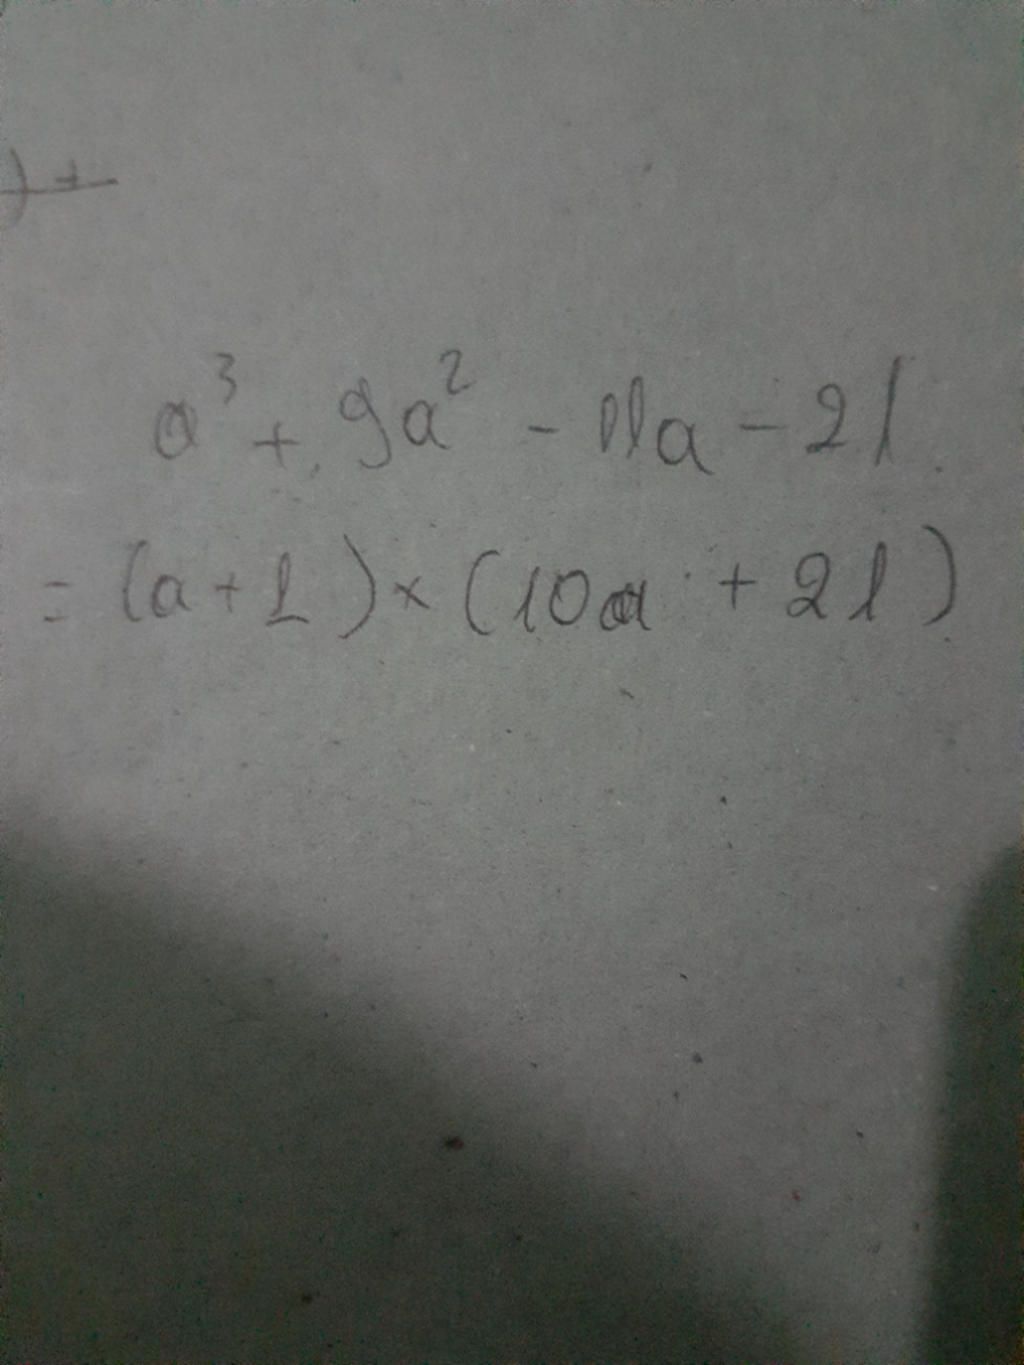 ) +
a³ + 9a² - 11a - 21
= (a + 1) × (10a + 21)